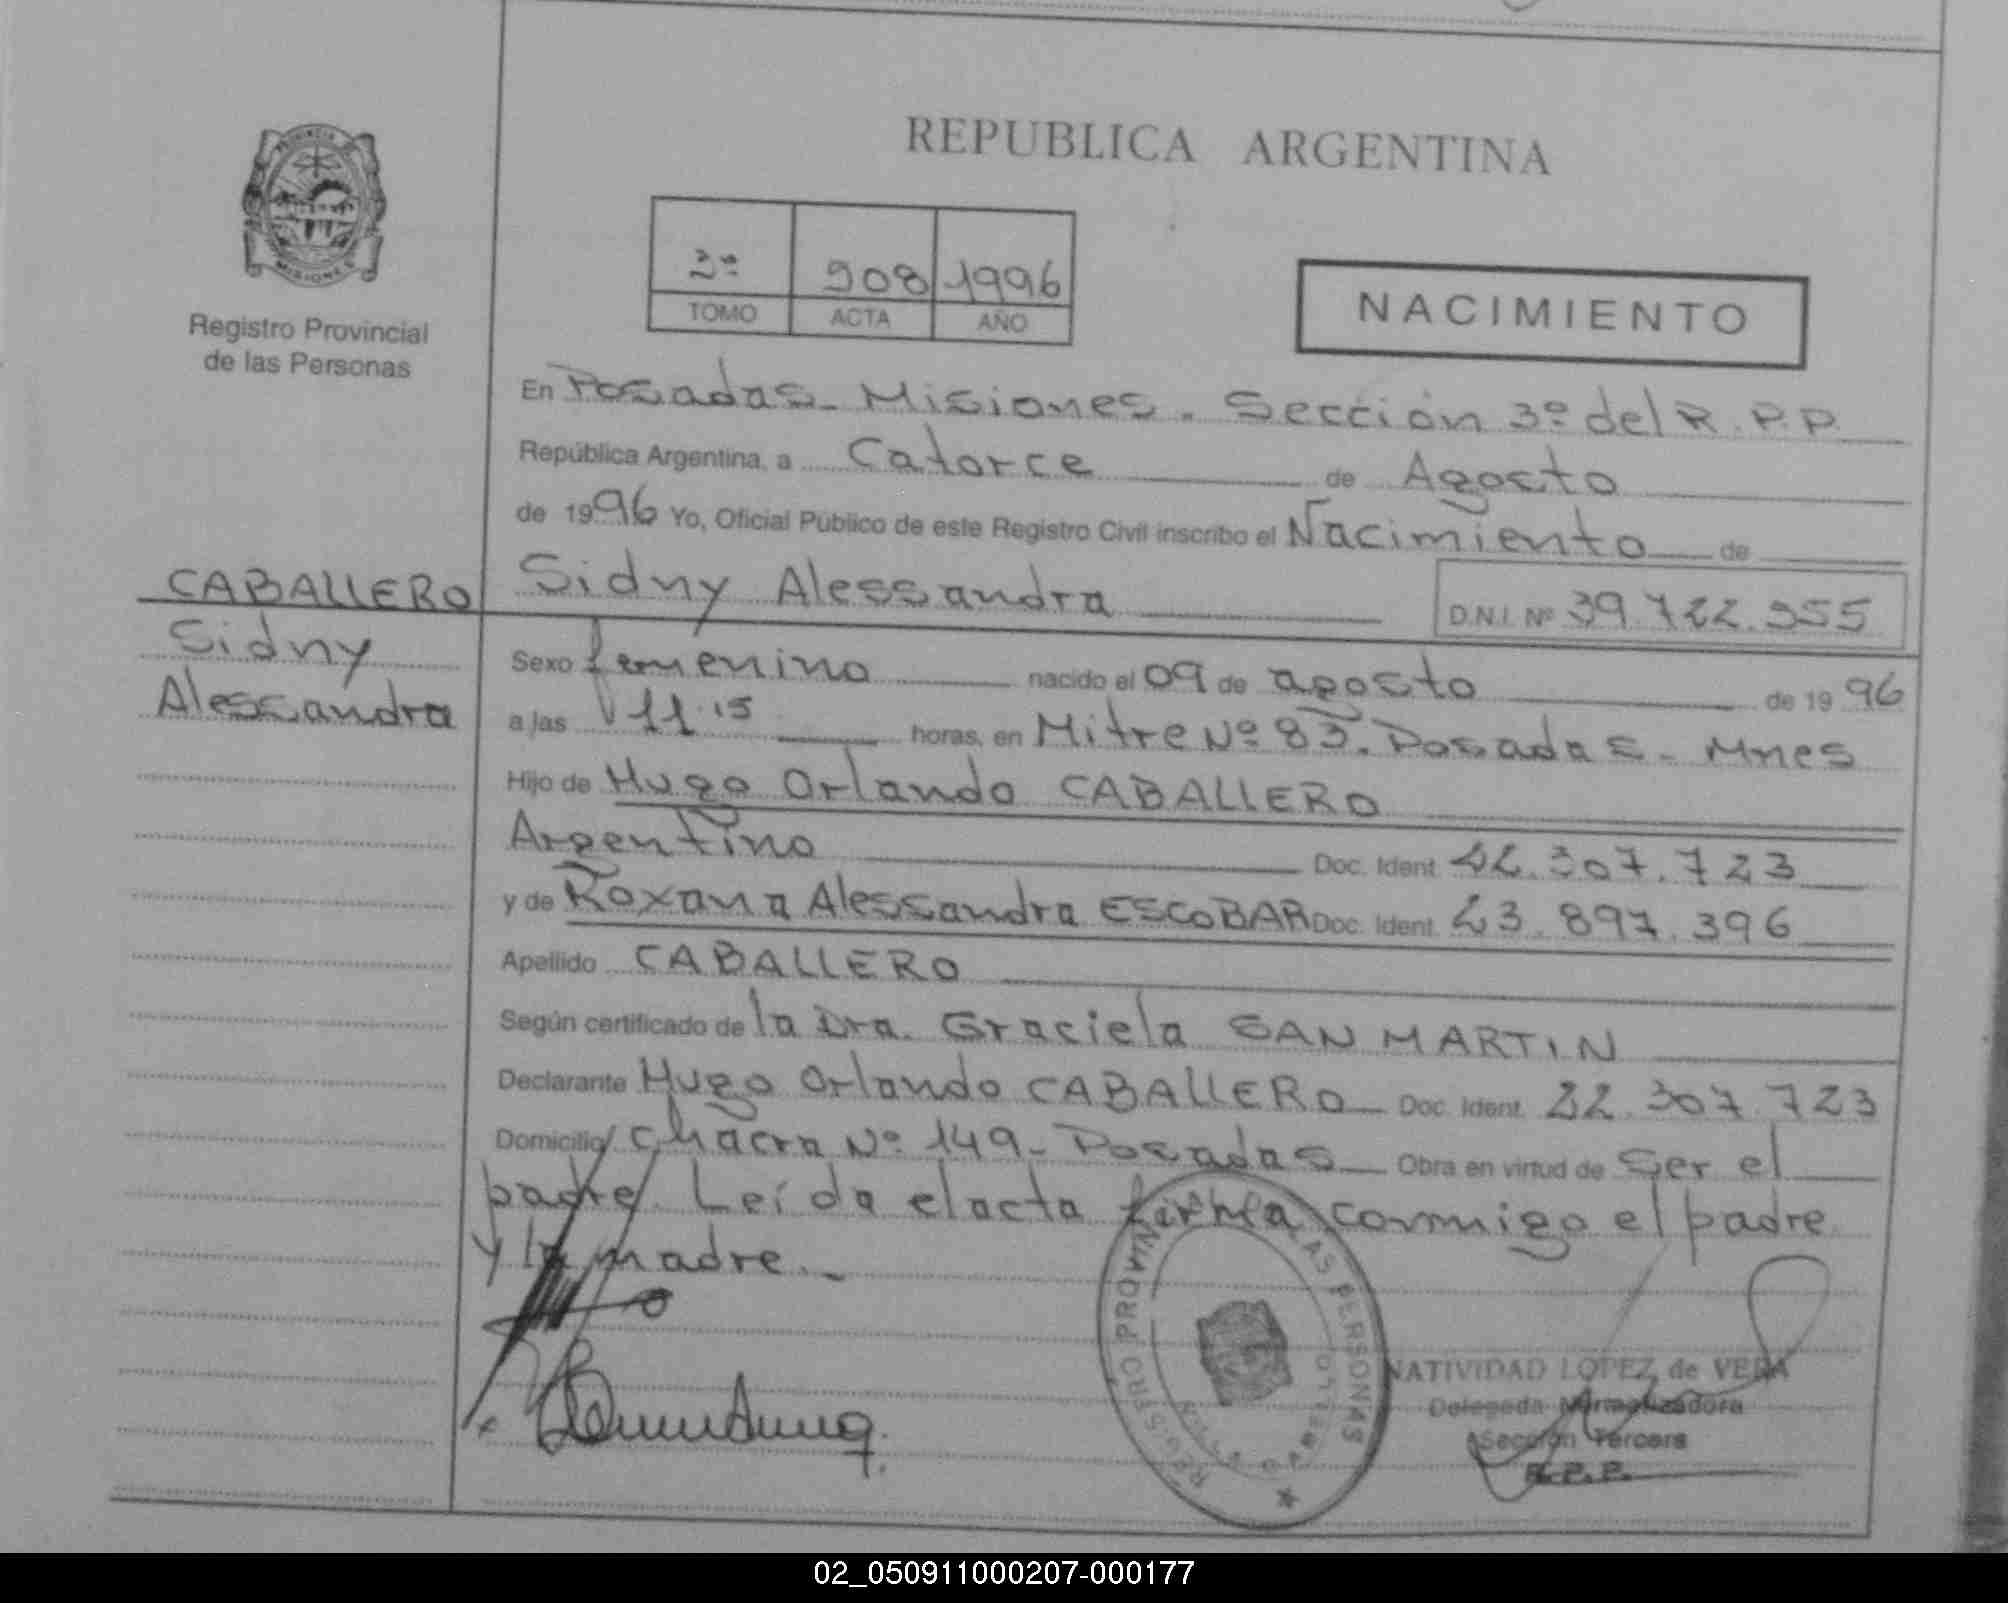 REPUBLICA ARGENTINA
PROVINCIA
MISIONES
Registro Provincial
de las Personas
2º 908 1996
TOMO ACTA AÑO
NACIMIENTO
En Posadas - Misiones. Sección 3º del R.P.P.
República Argentina, a Catorce de Agosto
de 1996 Yo, Oficial Público de este Registro Civil inscribo el Nacimiento de
CABALLERO Sidny Alessandra D.N.I. Nº 39.722.955
Sidny
Alessandra
Sexo femenino nacido el 09 de agosto de 1996
a las 11.15 horas, en Mitre Nº 83. Posadas - Mnes
Hijo de Hugo Orlando CABALLERO
Argentino Doc. Ident. 22.307.723
y de Roxana Alessandra ESCOBAR Doc. Ident. 23.897.396
Apellido CABALLERO
Según certificado de la Dra. Graciela SAN MARTIN
Declarante Hugo Orlando CABALLERO Doc. Ident. 22.307.723
Domicilio Chacra Nº 149 - Posadas Obra en virtud de Ser el
padre. Leída el acta firma conmigo el padre
y la madre.-
REGISTRO PROVINCIAL DE LAS PERSONAS
NATIVIDAD LOPEZ de VERA
Delegada Normalizadora
Sección Tercera
R.P.P.
02_050911000207-000177